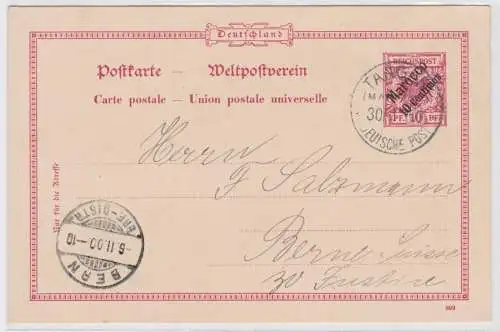 Deutschland
Postkarte — Weltpostverein
Carte postale — Union postale universelle
REICHSPOST
Marocco
10 centimos
PF. PF
TANGER
30 10
DEUTSCHE POST
Nur für die Adresse
Herrn
F Salzmann
Berne Suisse
BERN
-6.II.00.-10